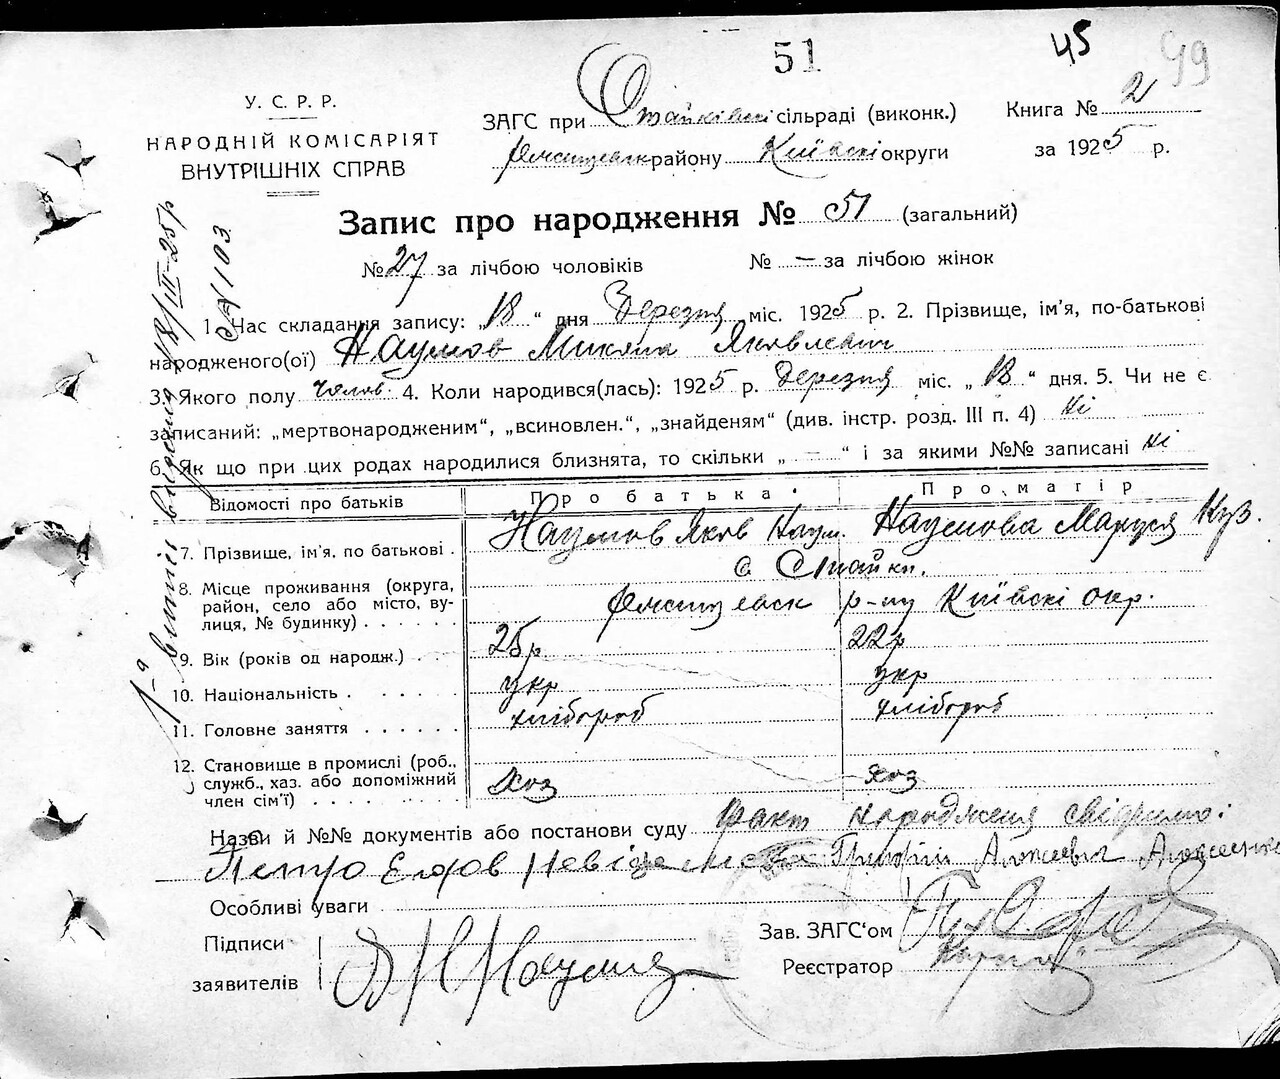 51
45
49
У. С. Р. Р.
НАРОДНІЙ КОМІСАРІЯТ
ВНУТРІШНІХ СПРАВ
ЗАГС при Стайківські сільраді (виконк.)
району Київські округи
Книга № 2
за 1925 р.
Запис про народження № 51 (загальний)
№ 27 за лічбою чоловіків № — за лічбою жінок
1. Час складання запису: „18“ дня Березня міс. 1925 р. 2. Прізвище, ім'я, по-батькові
народженого(ої) Наумов Микола Яковлевич
3. Якого полу чолов. 4. Коли народився(лась): 1925 р. Березня міс. „18“ дня. 5. Чи не є
записаний: „мертвонародженим“, „всиновлен.“, „знайденям“ (див. інстр. розд. III п. 4) ні
6. Як що при цих родах народилися близнята, то скільки „—“ і за якими №№ записані ні
Відомості про батьків
Про батька
Про матір
7. Прізвище, ім'я, по батькові .
Наумов Яков Наум.
Наумова Маруся Куз.
8. Місце проживання (округа, район, село або місто, вулиця, № будинку) . . . . . .
с. Стайки.
р-ну Київскі окр.
9. Вік (років од народж.) . . .
25 р
22 р
10. Національність . . . . . .
укр
укр
11. Головне заняття . . . . . .
хлібороб
хлібороб
12. Становище в промислі (роб., служб., хаз. або допоміжний член сім'ї) . . . . . . .
хоз
хоз
Назви й №№ документів або постанови суду факт народженя свідчимо:
Петро Григорій Алексеевич
Особливі уваги
Підписи
заявителів
Я Н Наумов
Зав. ЗАГС'ом
Реєстратор
1-а витіг видана 18/III-25р
№ 1103